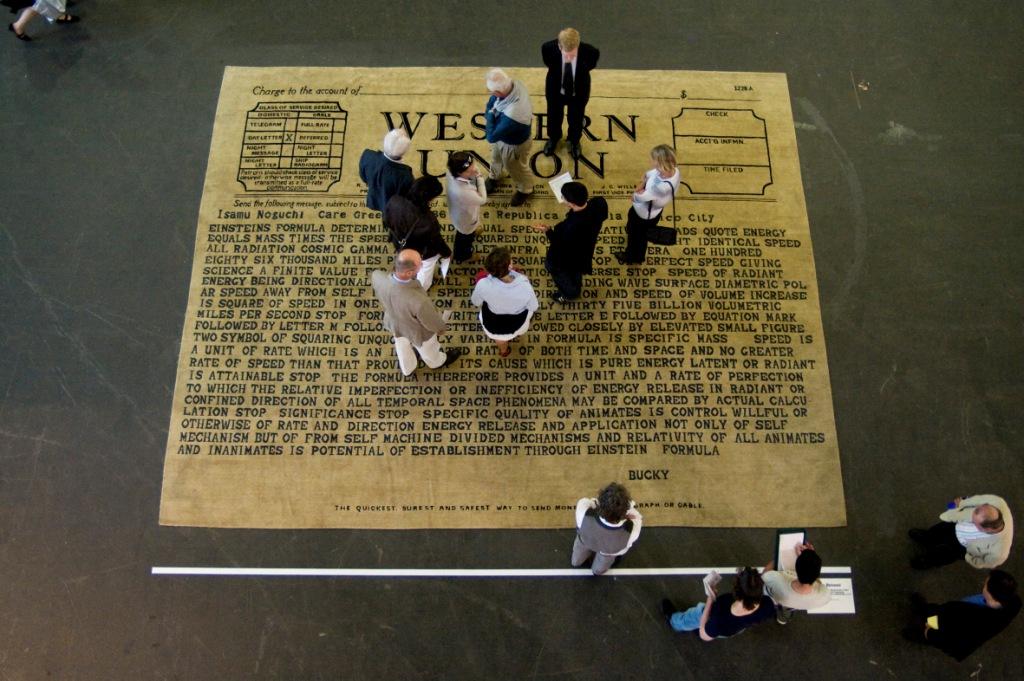 Charge to the account of $ 1228 A
CLASS OF SERVICE DESIRED
DOMESTIC CABLE
TELEGRAM FULL RATE
DAY LETTER X DEFERRED
NIGHT MESSAGE NIGHT LETTER
NIGHT LETTER SHIP RADIOGRAM
Patrons should check class of service
desired; otherwise message will be
transmitted as a full-rate
communication.
WES RN
UN ON
CHECK
ACCT'G INFMN.
TIME FILED
Send the following message, subject to
Isamu Noguchi Care Gree e Republica co City
EINSTEINS FORMULA DETERMIN DUAL SPEC ADS QUOTE ENERGY
EQUALS MASS TIMES THE SPEE SQUARED UNQ IDENTICAL SPEED
ALL RADIATION COSMIC GAMMA INFRA ETERA ONE HUNDRED
EIGHTY SIX THOUSAND MILES P PERFECT SPEED GIVING
SCIENCE A FINITE VALUE F ACTOR ERSE STOP SPEED OF RADIANT
ENERGY BEING DIRECTIONAL DING WAVE SURFACE DIAMETRIC POL
AR SPEED AWAY FROM SELF SPEE ION AND SPEED OF VOLUME INCREASE
IS SQUARE OF SPEED IN ONE LY THIRTY FIVE BILLION VOLUMETRIC
MILES PER SECOND STOP FORM LETTER E FOLLOWED BY EQUATION MARK
FOLLOWED BY LETTER M FOLLO ETTER OWED CLOSELY BY ELEVATED SMALL FIGURE
TWO SYMBOL OF SQUARING UNQUO LY VARI IN FORMULA IS SPECIFIC MASS SPEED IS
A UNIT OF RATE WHICH IS AN I TED RATE OF BOTH TIME AND SPACE AND NO GREATER
RATE OF SPEED THAN THAT PROVI ITS CAUSE WHICH IS PURE ENERGY LATENT OR RADIANT
IS ATTAINABLE STOP THE FORMULA THEREFORE PROVIDES A UNIT AND A RATE OF PERFECTION
TO WHICH THE RELATIVE IMPERFECTION OR INEFFICIENCY OF ENERGY RELEASE IN RADIANT OR
CONFINED DIRECTION OF ALL TEMPORAL SPACE PHENOMENA MAY BE COMPARED BY ACTUAL CALCU
LATION STOP SIGNIFICANCE STOP SPECIFIC QUALITY OF ANIMATES IS CONTROL WILLFUL OR
OTHERWISE OF RATE AND DIRECTION ENERGY RELEASE AND APPLICATION NOT ONLY OF SELF
MECHANISM BUT OF FROM SELF MACHINE DIVIDED MECHANISMS AND RELATIVITY OF ALL ANIMATES
AND INANIMATES IS POTENTIAL OF ESTABLISHMENT THROUGH EINSTEIN FORMULA
BUCKY
THE QUICKEST, SUREST AND SAFEST WAY TO SEND MONE RAPH OR CABLE.